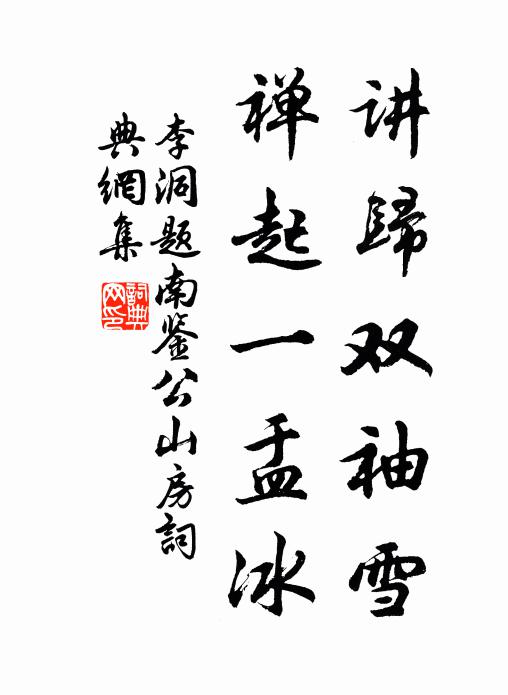 讲歸双袖雪
禅起一盂冰
李洞题南鉴公山房詞
典網集
詞典
网印